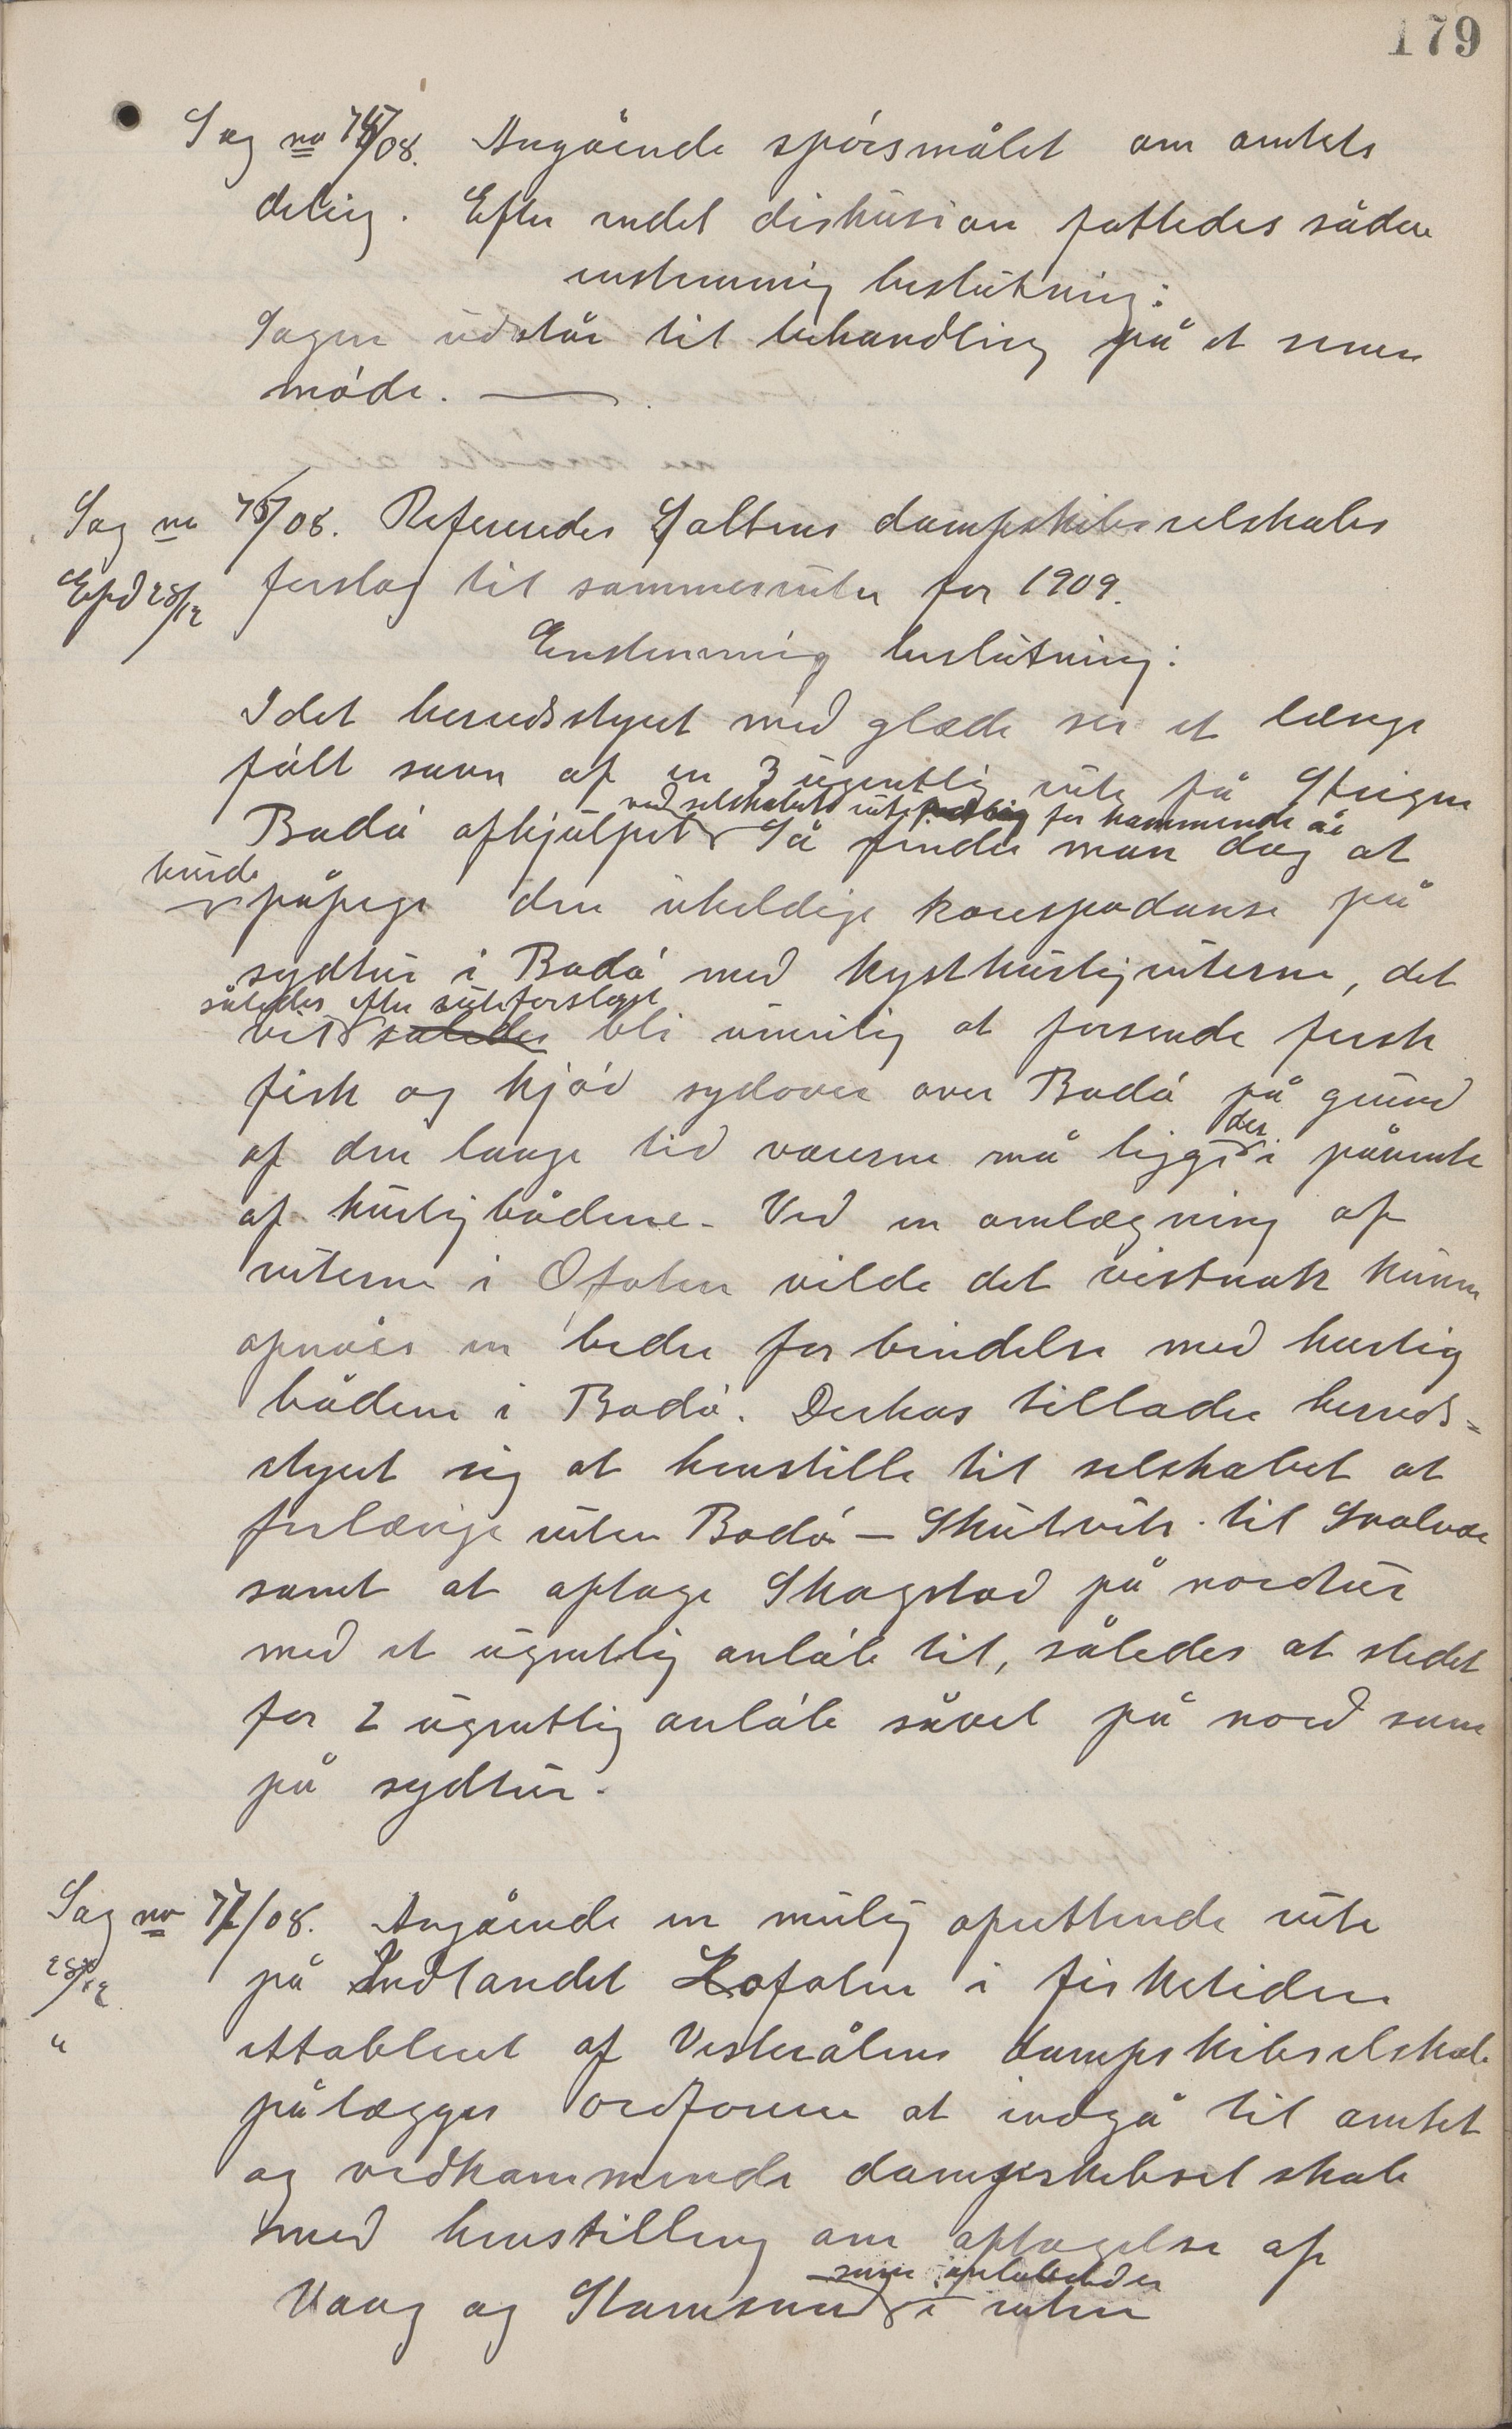 179
Sag no 74/08. Angående spörsmålet om amtets
deling. Efter endel diskusion fattedes sådan
enstemmig beslutning:
Sagen udstår til behandling på et senere
möde. —
Sag no 75/08. Refereredes Saltens dampskibsselskabs
Expd 28/12 forslag til sommerruter for 1909.
Enstemmig beslutning:
Idet herredsstyret med glæde ser et længe
fölt savn af en 3 ugentlig rute på Steigen
ved selskabets rute for kommende år
Bodö afhjulpet Så finder man dog at
burde
påpege den uheldige korespodanse på
sydtur i Bodö med kysthurtigruterne, det
således efter ruteforslaget
vil således bli umulig at forsende fersk
fisk og kjöd sydover over Bodö på grund
der
af den lange tid varerne må ligge i påvente
af hurtigbådene. Ved en omlægning af
ruterne i Ofoten vilde det vistnok kunne
opnåes en bedre forbindelse med hurtig
bådene i Bodö. Derhos tillader herreds=
styret sig at henstille til selskabet at
forlænge ruten Bodö – Skutvik til Svolvær
samt at optage Skagstad på nordtur
med et ugentlig anlöb til, således at stedet
får 2 ugentlig anlöb såvel på nord som
på sydtur.
Sag no 77/08. Angående en mulig oprettende rute
28/12 på Indlandet Lofoten i fisketiden
" ettableret af Vesterålens dampskibsselskab
pålægges ordforeren at indgå til amtet
og vedkommende dampskibsselskab
med henstilling om optagelse af
som anlöbssteder
Vaag og Stamsund i ruten